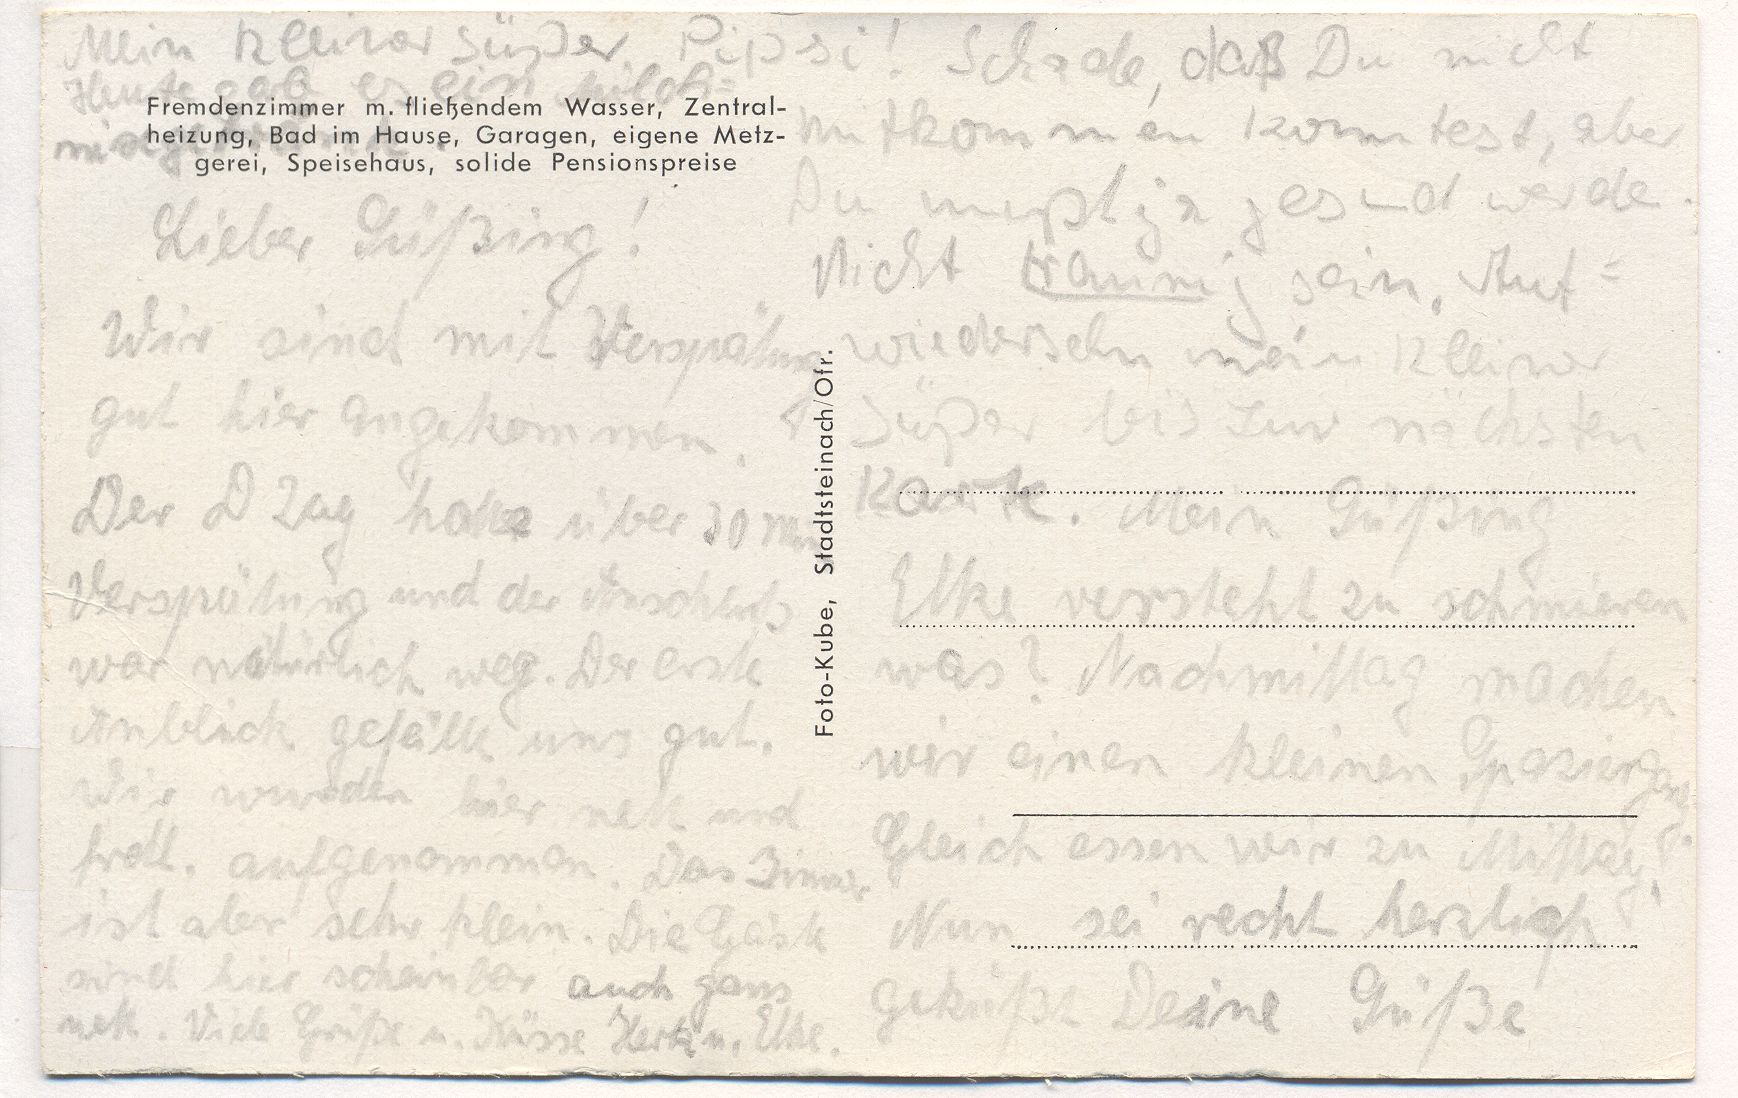 Mein kleiner süßer Pipsi! Schade, daß Du nicht
Heute gab es ein Milch=
Fremdenzimmer m. fließendem Wasser, Zentral-
heizung, Bad im Hause, Garagen, eigene Metz-
gerei, Speisehaus, solide Pensionspreise
Lieber Süßing!
Wir sind mit Verspätung
gut hier angekommen.
Der D Zug hatte über 30 Min
Verspätung und der Anschluß
war natürlich weg. Der erste
Anblick gefällt uns gut.
Wir wurden hier nett und
frdl. aufgenommen. Das Zimmer
ist aber sehr klein. Die Gäste
sind hier scheinbar auch ganz
nett. Viele Grüße u. Küsse Herta u. Elke.
Foto-Kube, Stadtsteinach/Ofr.
mitkommen konntest, aber
Du mußt ja gesund werde.
Nicht traurig sein. Auf=
wiedersehn mein kleiner
Süßer bis zur nächsten
Karte. Mein Süßing
Elke versteht zu schmieren
was? Nachmittag machen
wir einen kleinen Spaziergang
Gleich essen wir zu Mittag.
Nun sei recht herzlich
geküßt Deine Süße